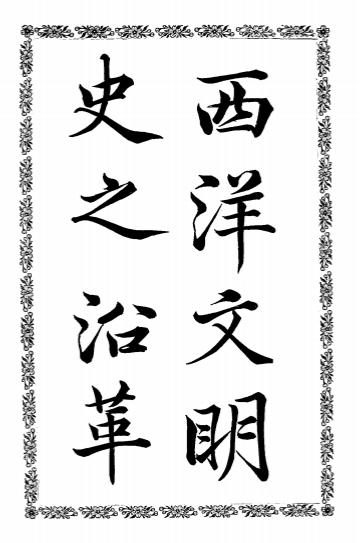 西洋文明
史之沿革